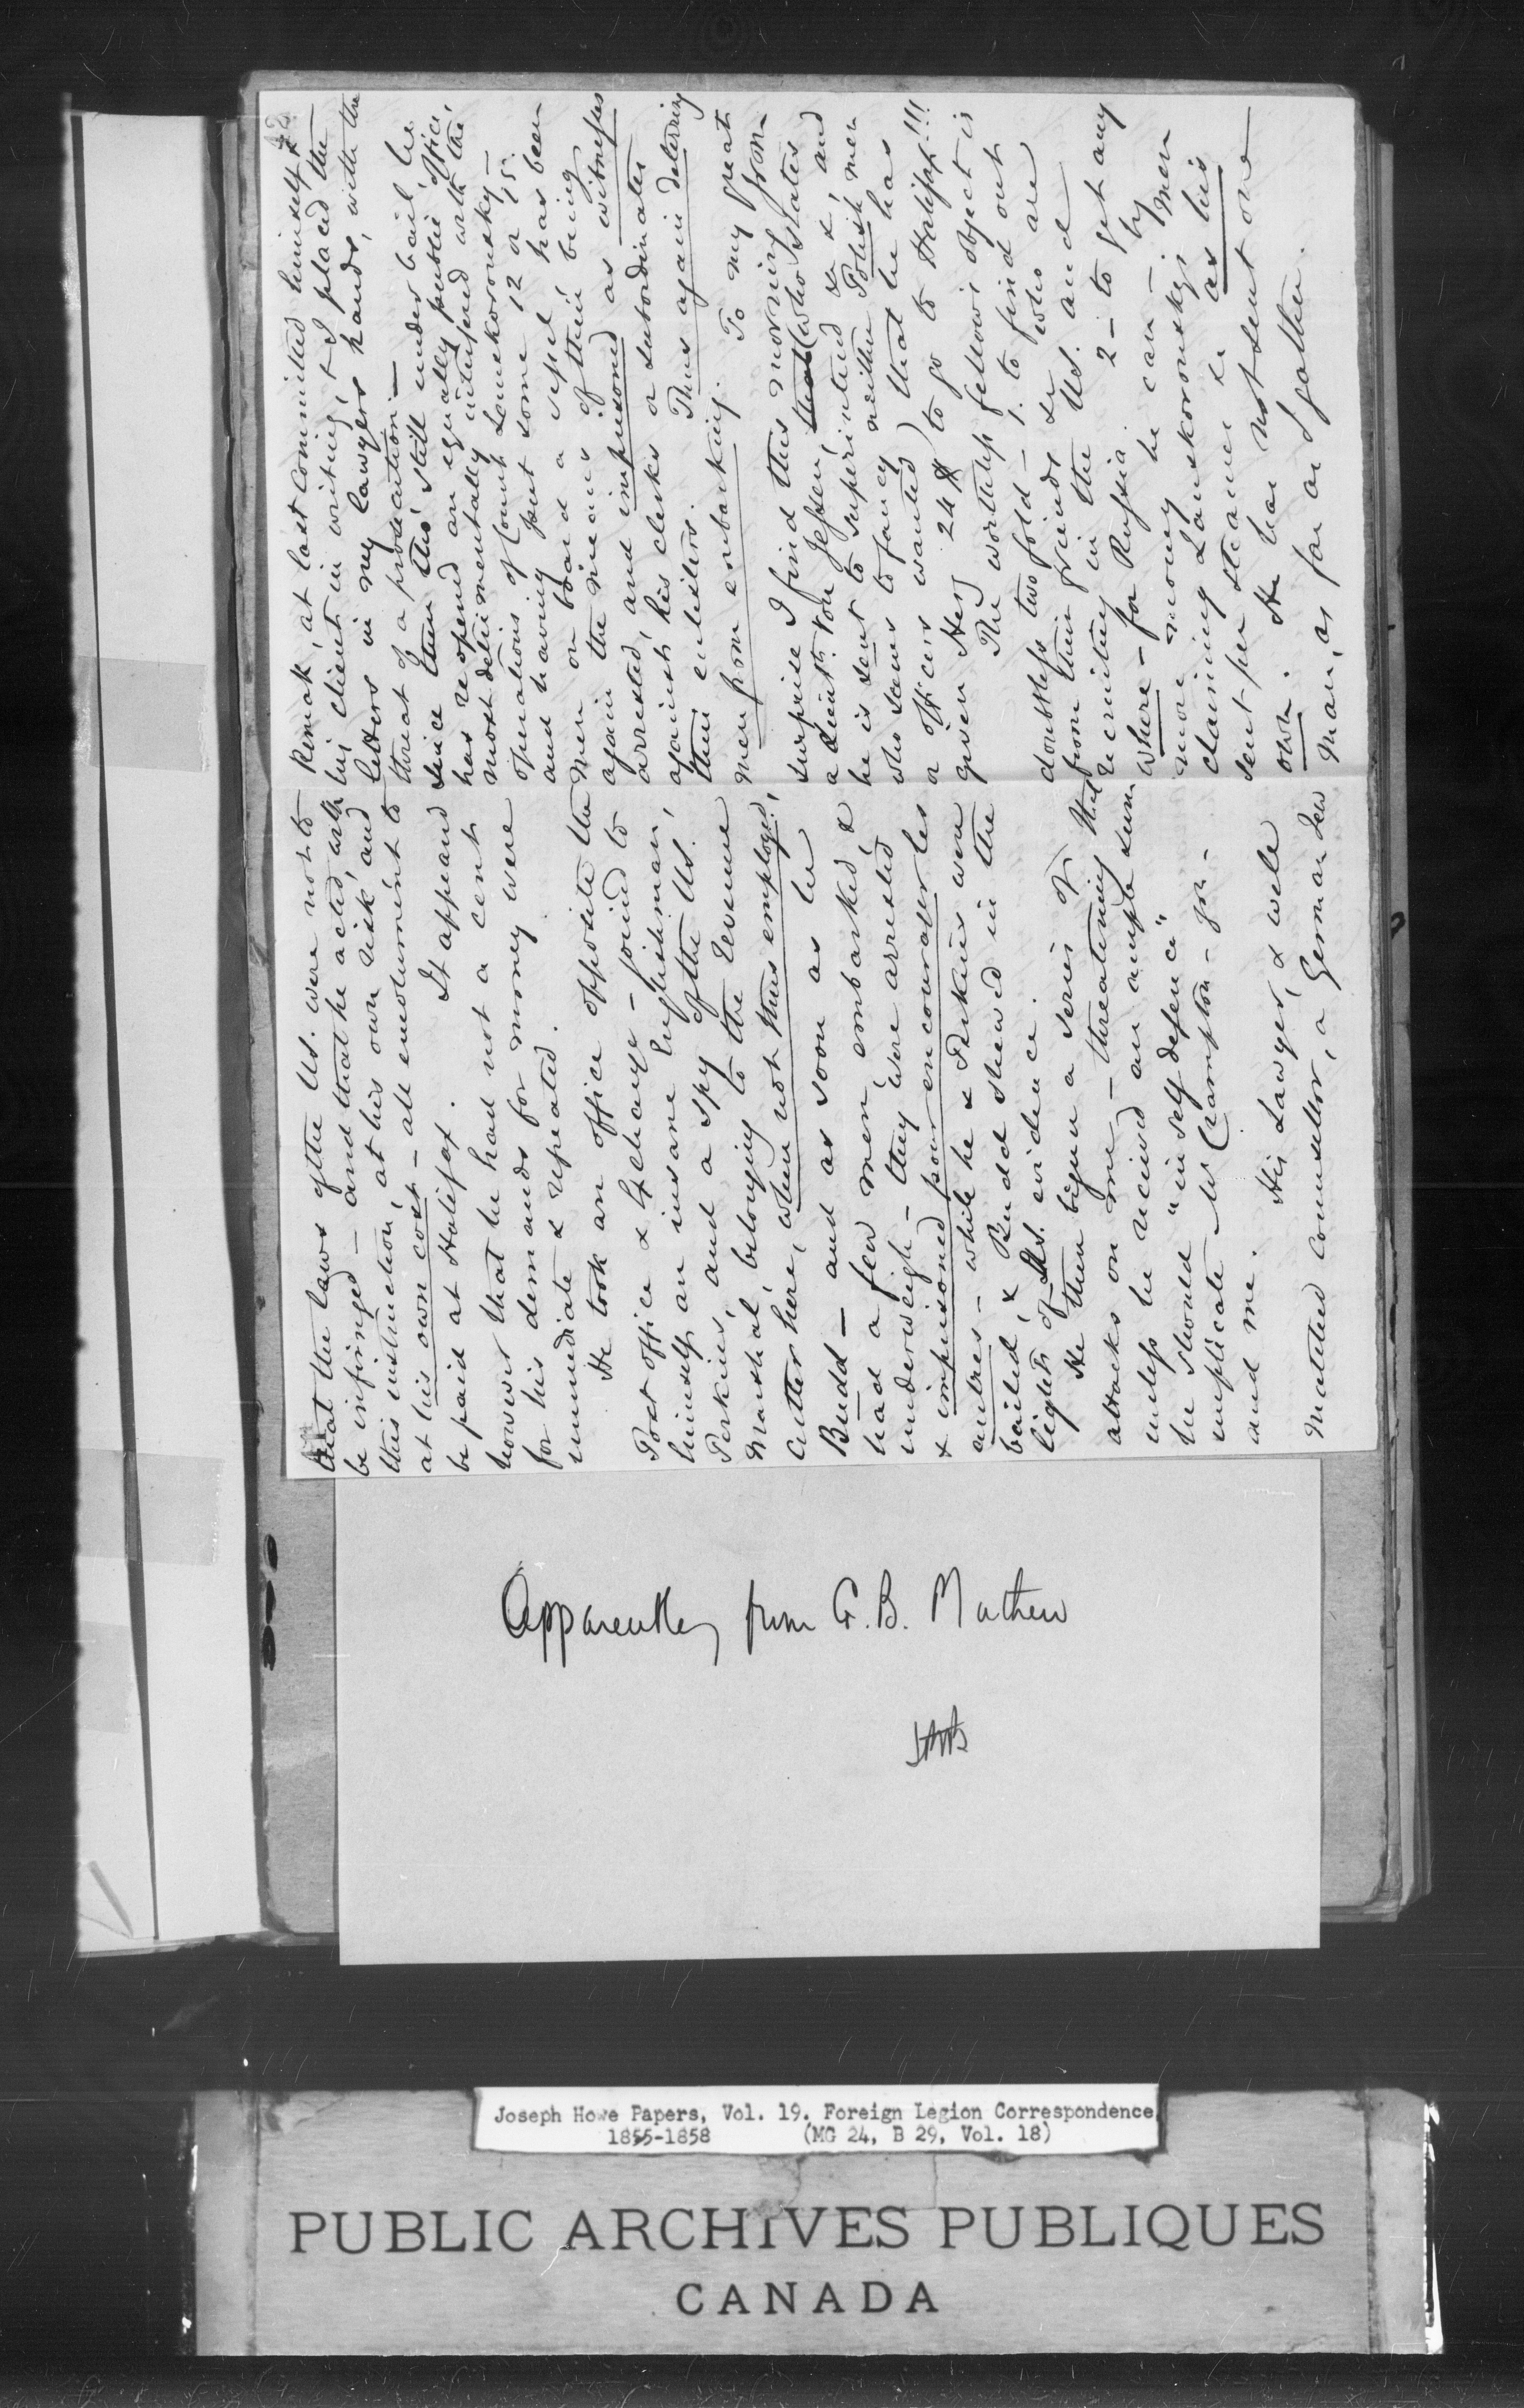 that the laws of the U.S. were not to
be infringed — and that he acted, with
this instruction, at his own risk, and
at his own cost — all emolument to
be paid at Halifax. It appeared
however that he had not a cent
for his demands for money were
immediate & repeated.
He took an office opposite the
Post office & Exchange — joined to
himself an insane Englishman,
Perkins, and a spy of the U.S.
Marshal, belonging to the Revenue
Cutter here, when not thus employed,
Budd — and as soon as he
had a few men embarked, &
underweigh — they were arrested
& imprisoned pour encourager les
autres — while he & Perkins were
bailed, & Budd shewed in the
light of U.S. evidence.
He then began a series of
attacks on me — threatening that
unless he received an ample sum
he should "in self defence"
implicate Mr Crampton —
and me.
His Lawyer, & well
matched counsellor, a German Jew
Remak, at last committed himself &
his client in writing, & I placed the
letters in my lawyers hands, with the
threat of a prosecution —
Since then tho' still under bail, he
has re opened an equally public office,
most detrimentally interfered with the
operations of Count Lanckoronsky —
and having put some 12 or 15
men on board a vessel has been
again the means of their being
arrested, and imprisoned as witnesses
against his clerks or subordinates
their enlisters. Thus again deterring
men from embarking. To my great
surprise I find this morning from
a Lieut. Von Jessen, (who states
he is sent to superintend &c &, and
who seems to fancy neither Polish men
or officers wanted) that he has
given Herz 24 $ to go to Halifax!!!
The worthless fellows object is
doubtless two fold — 1. to find out
from their friends &c who are
recruiting in the U.S. and
where — for Russia. 2 — to get any
more money he can — by
claiming Lanskoronskys men
sent per steamer &c as his
own. He has not sent one
man, as far as I gather.
Apparently from G.B. Mathew
Joseph Howe Papers, Vol. 19. Foreign Legion Correspondence
1855-1858 (MG 24, B 29, Vol. 18)
PUBLIC ARCHIVES PUBLIQUES
CANADA